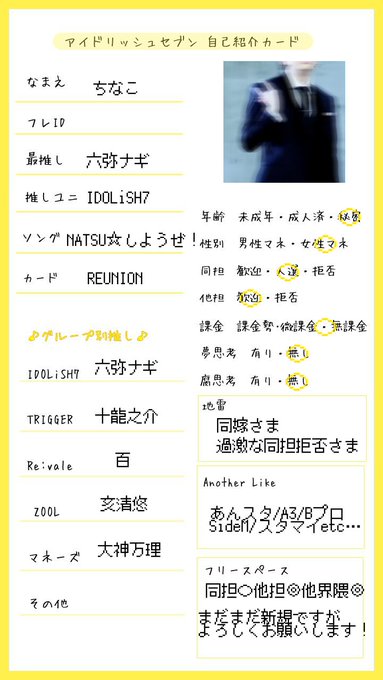 アイドリッシュセブン 自己紹介カード
なまえ ちなこ
フレID
最推し 六弥ナギ
推しユニ IDOLiSH7
ソング NATSU☆しようぜ!
カード REUNION
♪グループ別推し♪
IDOLiSH7 六弥ナギ
TRIGGER 十龍之介
Re:vale 百
ŹOOĻ 亥清悠
マネーズ 大神万理
その他
年齢 未成年・成人済・秘密
性別 男性マネ・女性マネ
同担 歓迎・人選・拒否
他担 歓迎・拒否
課金 課金勢・微課金・無課金
夢思考 有り・無し
腐思考 有り・無し
地雷
同嫁さま
過激な同担拒否さま
Another Like
あんスタ/A3/Bプロ
SideM/スタマイetc…
フリースペース
同担○他担◎他界隈◎
まだまだ新規ですが
よろしくお願いします!